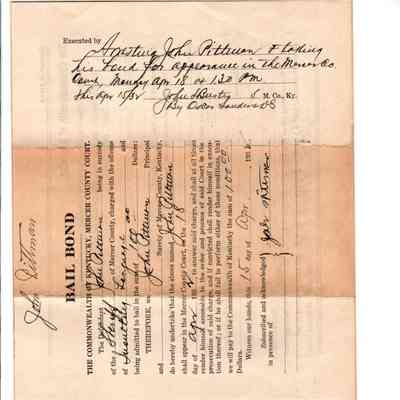 Executed by Arresting John Pittman & taking
his bond for appearance in the Mercer Co.
Court, Monday Apr 18 at 1:30 PM
this Apr 15/32
S. M. Co., Ky.
By
John Pittman
BAIL BOND
THE COMMONWEALTH OF KENTUCKY, MERCER COUNTY COURT.
The Defendant John Pittman being in custody
of the Sheriff of Mercer County, charged with the offense
of and
being admitted to bail in the sum of 100.00 Dollars:
THEREFORE, we John Pittman Principal
and Surety of Mercer County, Kentucky,
do hereby undertake that the above named John Pittman
shall appear in the Mercer County Court, on the 18
day of Apr 193 2 to answer said charge, and shall at all times
render himself amenable to the order and process of said Court in the
prosecution of said charge, and if convicted shall render himself in execu-
tion thereof; or if he shall fail to perform either of these conditions, that
we will pay to the Commonwealth of Kentucky the sum of 100.00
Dollars.
Witness our hands, this 15 day of Apr 193
Subscribed and acknowledged
in presence of